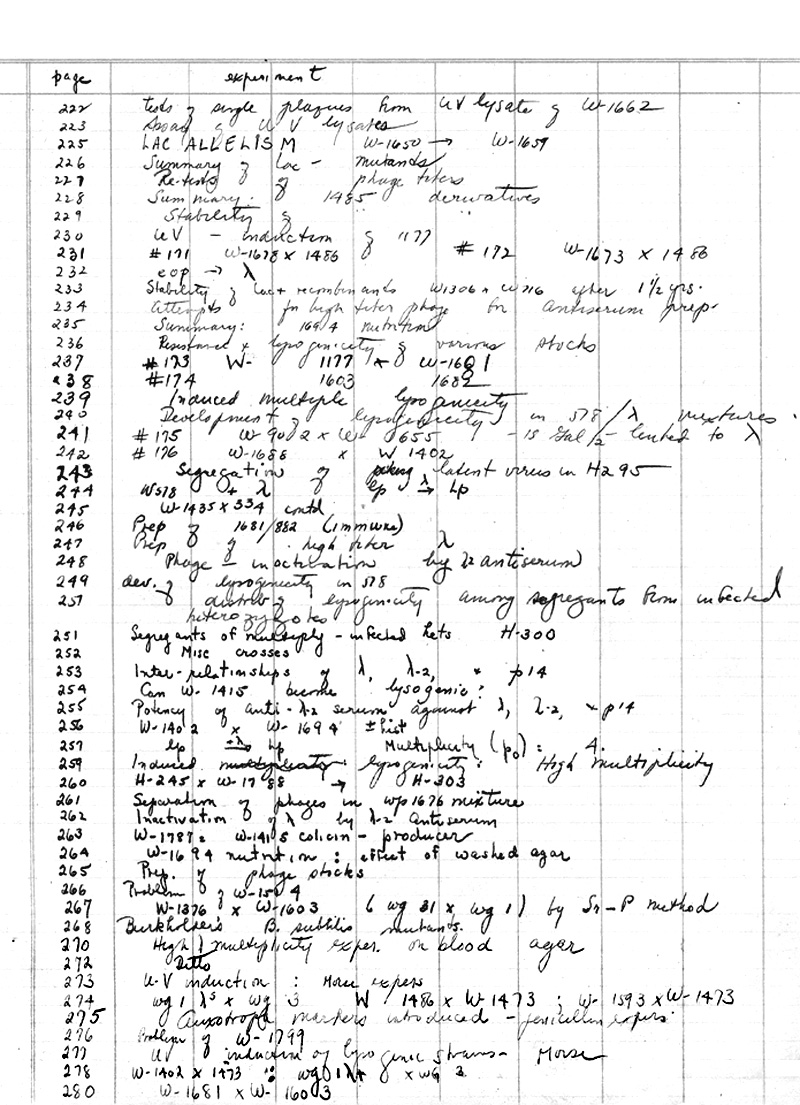 page experiment
222 tests of single plaques from UV lysate of W-1662
223 Assay of UV lysates
225 LAC ALLELISM W-1650 → W-1659
226 Summary of Lac - mutants
227 Re-tests of phage titers
228 Summary: 1485 derivatives
229 Stability of " "
230 UV - induction of 1177
231 #171 W-1678 x 1486 #172 W-1673 x 1486
232 eop → λ
233 Stability of Lac+ recombinants W1306 x W716 after 1 1/2 yrs.
234 Attempts for high titer phage for antiserum prep.
235 Summary: 1694 nutrition
236 Resistance x lysogenicity of various stocks
237 #173 W- 1177 x W-1601
238 #174 1603 1682
239 Induced multiple lysogenicity
240 Development of lysogenicity in 578/λ mixtures.
241 #175 W-902 x W- 655 - is Gal2- linked to λ
242 #176 W-1688 x W 1402
243 Segregation of latent virus in H295
244 W578 + λ lp →λ Lp
245 W-1435 x 334 contd
246 Prep of 1681/882 (immune)
247 Prep of high titer λ
248 Phage - inactivation by λ2 antiserum
249 dev. of lysogenicity in 578
251 distrib of lysogenicity among segregants from infected
heterozygotes
251 Segregants of multiply-infected hets H-300
252 Misc crosses
253 Inter-relationships of λ, λ-2, + p14
254 Can W-1415 become lysogenic?
255 Potency of anti-λ-2 serum against λ, λ-2, + p14
256 W-1402 x W-1694 ± hist
257 lp +λ→ Lp Multiplicity (p0): 4.
259 Induced lysogenicity: High multiplicity
260 H-245 x W-1788 → H-303
261 Separation of phages in wp1676 mixture
262 Inactivation of λ by λ-2 Antiserum
263 W-1787: W-1415 colicin-producer
264 W-1694 nutrition: effect of washed agar
265 Prep. of phage stocks
266 Problem of W-1504
267 W-1376 x W-1603 (wg 31 x wg 1) by Sm-P method
268 Burkholder's B. subtilis mutants.
270 High multiplicity exper. on blood agar
272 Ditto
273 UV induction: Morse expers
274 wg 1 λs x wg 3 W 1486 x W-1473; W-1593 x W-1473
275 Auxotroph markers introduced - penicillin expers.
276 Problem of W-1799
277 UV induction of lysogenic strains- Morse
278 W-1402 x 1473 :: wg 1 λ+ x wg 3
280 W-1681 x W-1603